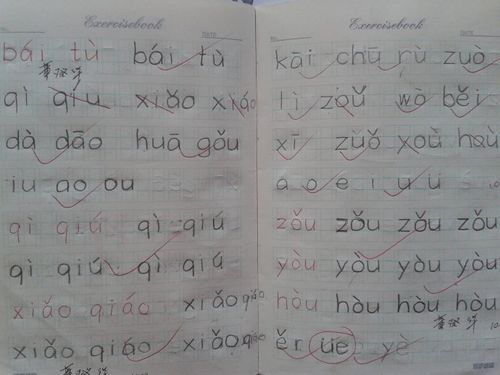 Exercisebook
bái tù bái tù
qì qiu xiǎo xiáo
dà dāo huā gǒu
iu ao ou
qì qiú qì qiú
qì qiú qì qiú
xiǎo qiáo xiǎo qiáo
xiǎo qiáo xiǎo qiáo
Exercisebook
DATE
kāi chū rù zuò
lì zǒu wò běi
xī zuǒ yòu hòu
a o e i u ü
zǒu zǒu zǒu zǒu
yòu yòu yòu yòu
hòu hòu hòu hòu
ěr üe yè